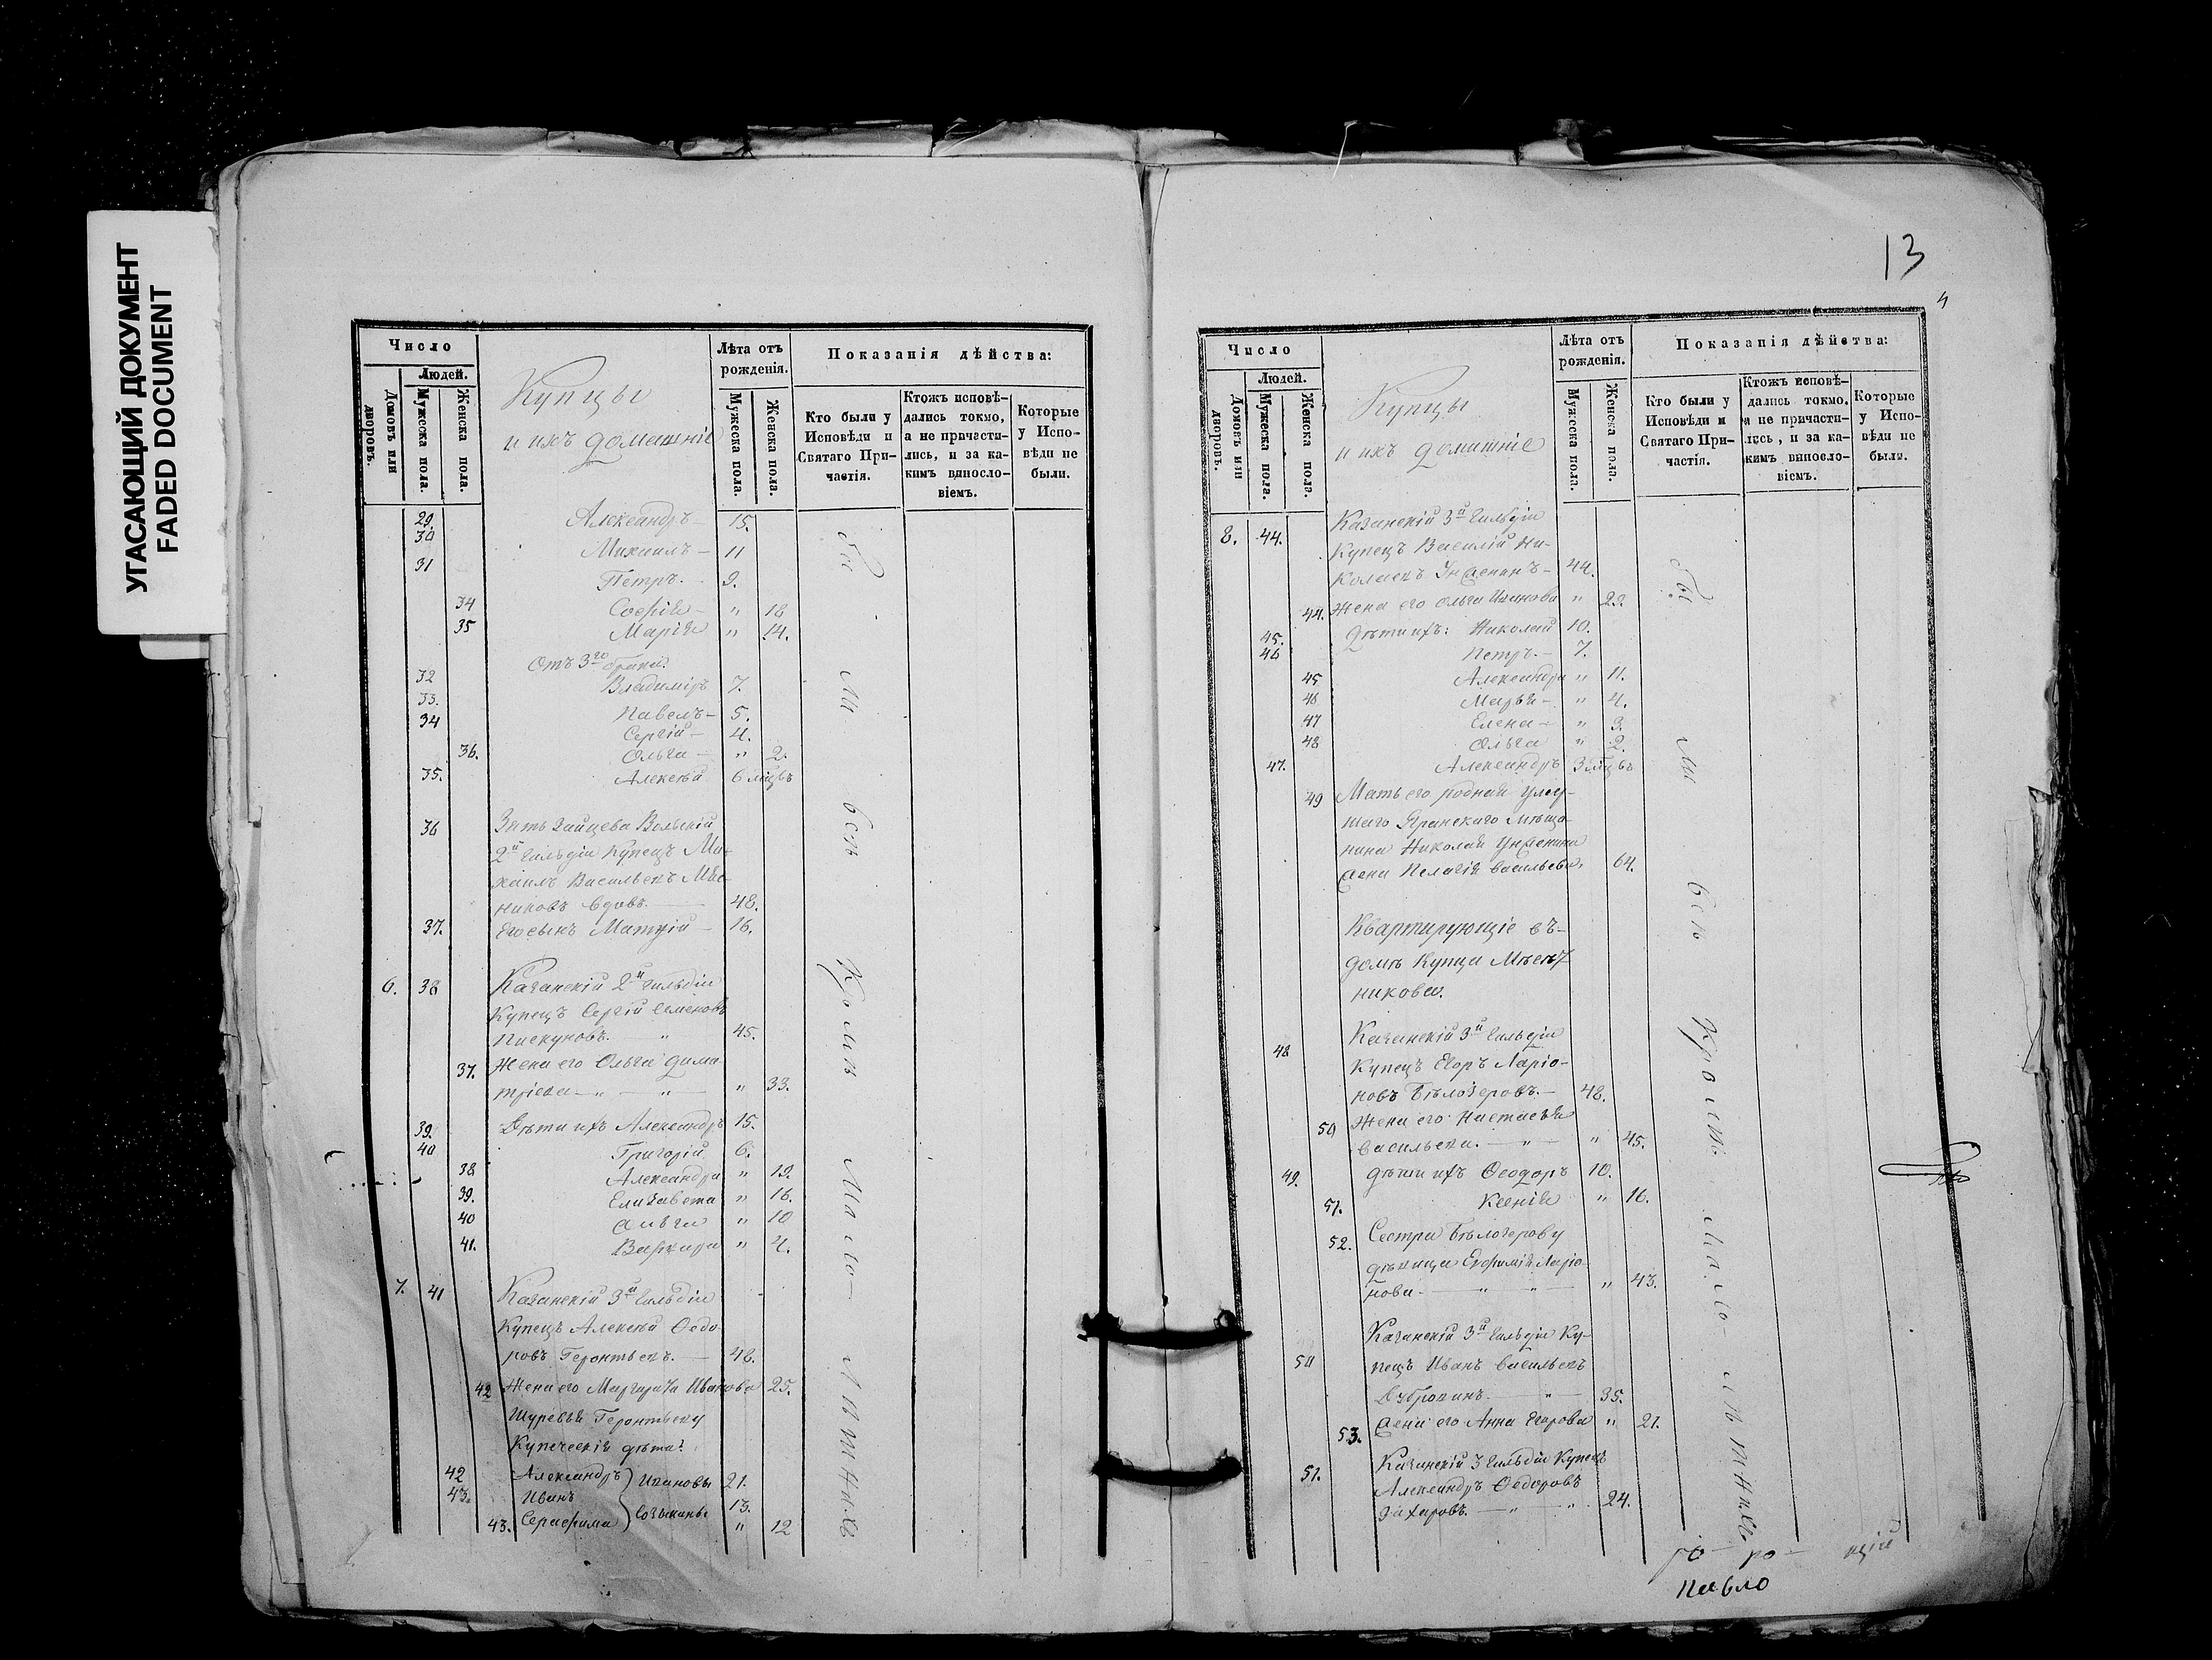 УГАСАЮЩИЙ ДОКУМЕНТ
FADED DOCUMENT
Число
Людей.
Домовъ или дворовъ.
Мужеска пола.
Женска пола.
Купцы
и ихъ домашніе
Лѣта отъ рожденія.
Мужеска пола.
Женска пола.
Показанія дѣйства:
Кто были у Исповѣди и Святаго Причастія.
Ктожъ исповѣдались токмо, а не причастились, и за какимъ винословіемъ.
Которые у Исповѣди не были.
29. Александръ 15.
30 Михаилъ 11
31 Петръ. 9.
34 Софія " 18
35 Марія " 14.
Отъ 3го брака:
32 Владиміръ 7.
33. Павелъ 5.
34 Сергій 4.
36. Ольга " 2.
35. Алексѣй 6 мцвъ
36 Зять Зайцева Вольскій
2й гильдіи Купецъ Ми-
хаилъ Васильевъ Мяс-
никовъ вдовъ. 48.
37. Его сынъ 16.
6. 38 Казанскій 2й гильдіи
Купецъ Сергій Семеновъ
Пискуновъ. " 45.
37. Жена его Ольга Дими-
тріева " " " 33.
39. Дѣти ихъ Александръ 15.
40 Григорій 6.
38 Александра " 19.
39. Елизавета " 16.
40 Ольга " 10
41. Варвара " 4.
7. 41 Казанскій 3й гильдіи
Купецъ Алексѣй Ѳедо-
ровъ Геронтьевъ. 48.
42 Жена его Маргарита Иванова 25.
Шурья Геронтьеву
Купеческія дѣти:
42 Александръ Ивановы 21.
43. Иванъ 13.
43. Серафима " 12
бы ли всѣ кромѣ мало- лѣтныхъ
13
4
Число
Людей.
Домовъ или дворовъ.
Мужеска пола.
Женска пола.
Купцы
и ихъ домашніе
Лѣта отъ рожденія.
Мужеска пола.
Женска пола.
Показанія дѣйства:
Кто были у Исповѣди и Святаго Причастія.
Ктожъ исповѣдались токмо, и не причастились, и за какимъ винословіемъ.
Которые у Исповѣди не были.
8. 44. Казанскій 3й гильдіи
Купецъ Василій Ни-
колаевъ Унженинъ 44.
44. Жена его Ольга Иванова " 29.
45. Дѣти ихъ: Николай 10.
46 Петръ. 7.
45 Александра " 11.
46 Марья " 4.
47 Елена " 3.
48 Ольга " 2.
47. Александръ 3 мцвъ
49 Мать его родная умер-
шаго Яранскаго Мѣща-
нина Николая Унженина
жена Пелагія Васильева, 64.
Квартирующіе въ
домѣ Купца Мяс-
никова.
48 Казанскій 3й гильдіи
Купецъ Егоръ Ларіо-
новъ Бѣлозеровъ. 48.
50 Жена его Настасья
Васильева. " " 45.
49. Дѣти ихъ Ѳеодоръ 10.
51. Ксенія " 16.
52. Сестра Бѣлозерову
дѣвица Евфимія Ларіо-
нова " " " 43.
50 Казанскій 3й гильдіи Ку-
пецъ Иванъ Васильевъ
" 35.
53. Жена его Анна Егорова " 21.
51. Казанскій 3 гильдіи Купецъ
Александръ Ѳедоровъ
Захаровъ. " " 24.
бы ли всѣ кромѣ мало- лѣтныхъ
го- ро- цкій
Павло